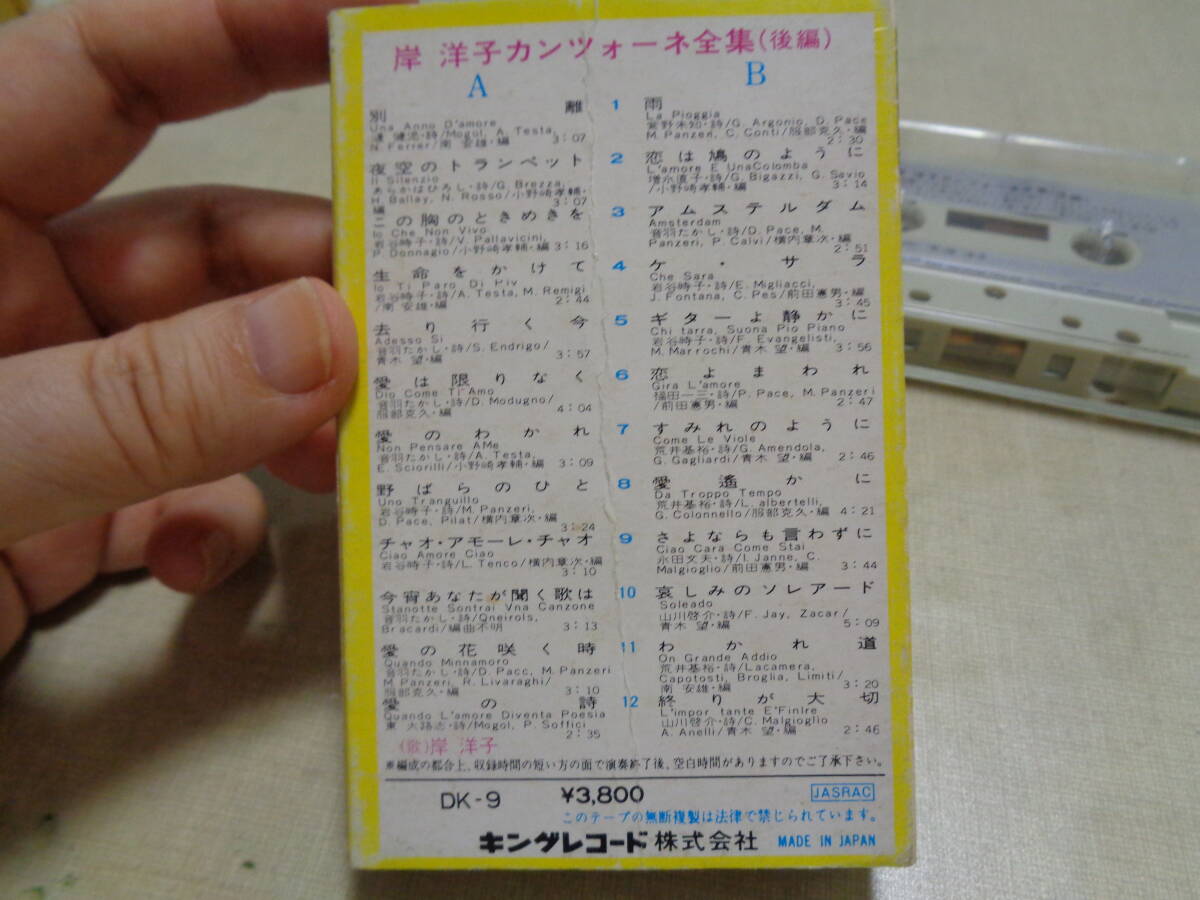 岸 洋子カンツォーネ全集(後編)
A
別離
Una Anno D'amore
健児・詩/Mogol, A. Testa,
N. Ferrer/南 安雄・編 3:07
夜空のトランペット
Il Silenzio
あらかはひろし・詩/G. Brezza,
H. Ballay, N. Rosso/小野崎孝輔・
編 3:07
この胸のときめきを
Io Che Non Vivo
岩谷時子・詩/V. Pallavicini,
P. Donnagio/小野崎孝輔・編 3:16
生命をかけて
Io Ti Paro Di Piv
岩谷時子・詩/A. Testa, M. Remigi
/南 安雄・編 2:44
去り行く今
Adesso Si
音羽たかし・詩/S. Endrigo/
青木 望・編 3:57
愛は限りなく
Dio Come Ti Amo
音羽たかし・詩/D. Modugno/
服部克久・編 4:04
愛のわかれ
Non Pensare AMe
音羽たかし・詩/A. Testa,
E. Sciorilli/小野崎孝輔・編 3:09
野ばらのひと
Uno Tranguillo
岩谷時子・詩/M. Panzeri,
D. Pace, Pilat/横内章次・編
3:24
チャオ・アモーレ・チャオ
Ciao Amore Ciao
岩谷時子・詩/L. Tenco/横内章次・編
3:10
今宵あなたが聞く歌は
Stanotte Sontrai Vna Canzone
音羽たかし・詩/Qneirols,
Bracardi/編曲不明 3:13
愛の花咲く時
Quando Minnamoro
音羽たかし・詩/D. Pacc, M. Panzeri
M. Panzeri, R. Livaraghi/
服部克久・編 3:10
愛の詩
Quando L'amore Diventa Poesia
東 大路志・詩/Mogol, P. Soffici
2:35
(歌)岸 洋子
B
1 雨
La Pioggia
未知・詩/G. Argonio, D. Pace
M. Panzeri, C. Conti/服部克久・編
2:30
2 恋は鳩のように
L'amore E UnaColomba
増永直子・詩/G. Bigazzi, G. Savio
/小野崎孝輔・編 3:14
3 アムステルダム
Amsterdam
音羽たかし・詩/D. Pace, M.
Panzeri, P. Calvi/横内章次・編
2:51
4 ケ・サラ
Che Sara
岩谷時子・詩/E. Migliacci,
J. Fontana, C. Pes/前田憲男・編
3:45
5 ギターよ静かに
Chi tarra, Suona Pio Piano
岩谷時子・詩/F. Evangelisti,
M. Marrochi/青木 望・編 3:56
6 恋よまわれ
Gira L'amore
福田一三・詩/P. Pace, M. Panzeri
/前田憲男・編 2:47
7 すみれのように
Come Le Viole
荒井基裕・詩/G. Amendola,
G. Gagliardi/青木 望・編 2:46
8 愛遙かに
Da Troppo Tempo
荒井基裕・詩/L. albertelli,
G. Colonnello/服部克久・編 4:21
9 さよならも言わずに
Ciao Cara Come Stai
永田文夫・詩/I. Janne, C.
Malgioglio/前田憲男・編 3:44
10 哀しみのソレアード
Soleado
山川啓介・詩/F. Jay, Zacar/
青木 望・編 5:09
11 わかれ道
On Grande Addio
荒井基裕・詩/Lacamera,
Capotosti, Broglia, Limiti/
南 安雄・編 3:20
12 終りが大切
L'impor tante E'Finlre
山川啓介・詩/C. Malgioglio
A. Anelli/青木 望・編 2:46
※編成の都合上、収録時間の短い方の面で演奏終了後、空白時間がありますのでご了承下さい。
DK-9 ¥3,800 JASRAC
このテープの無断複製は法律で禁じられています。
キングレコード株式会社 MADE IN JAPAN